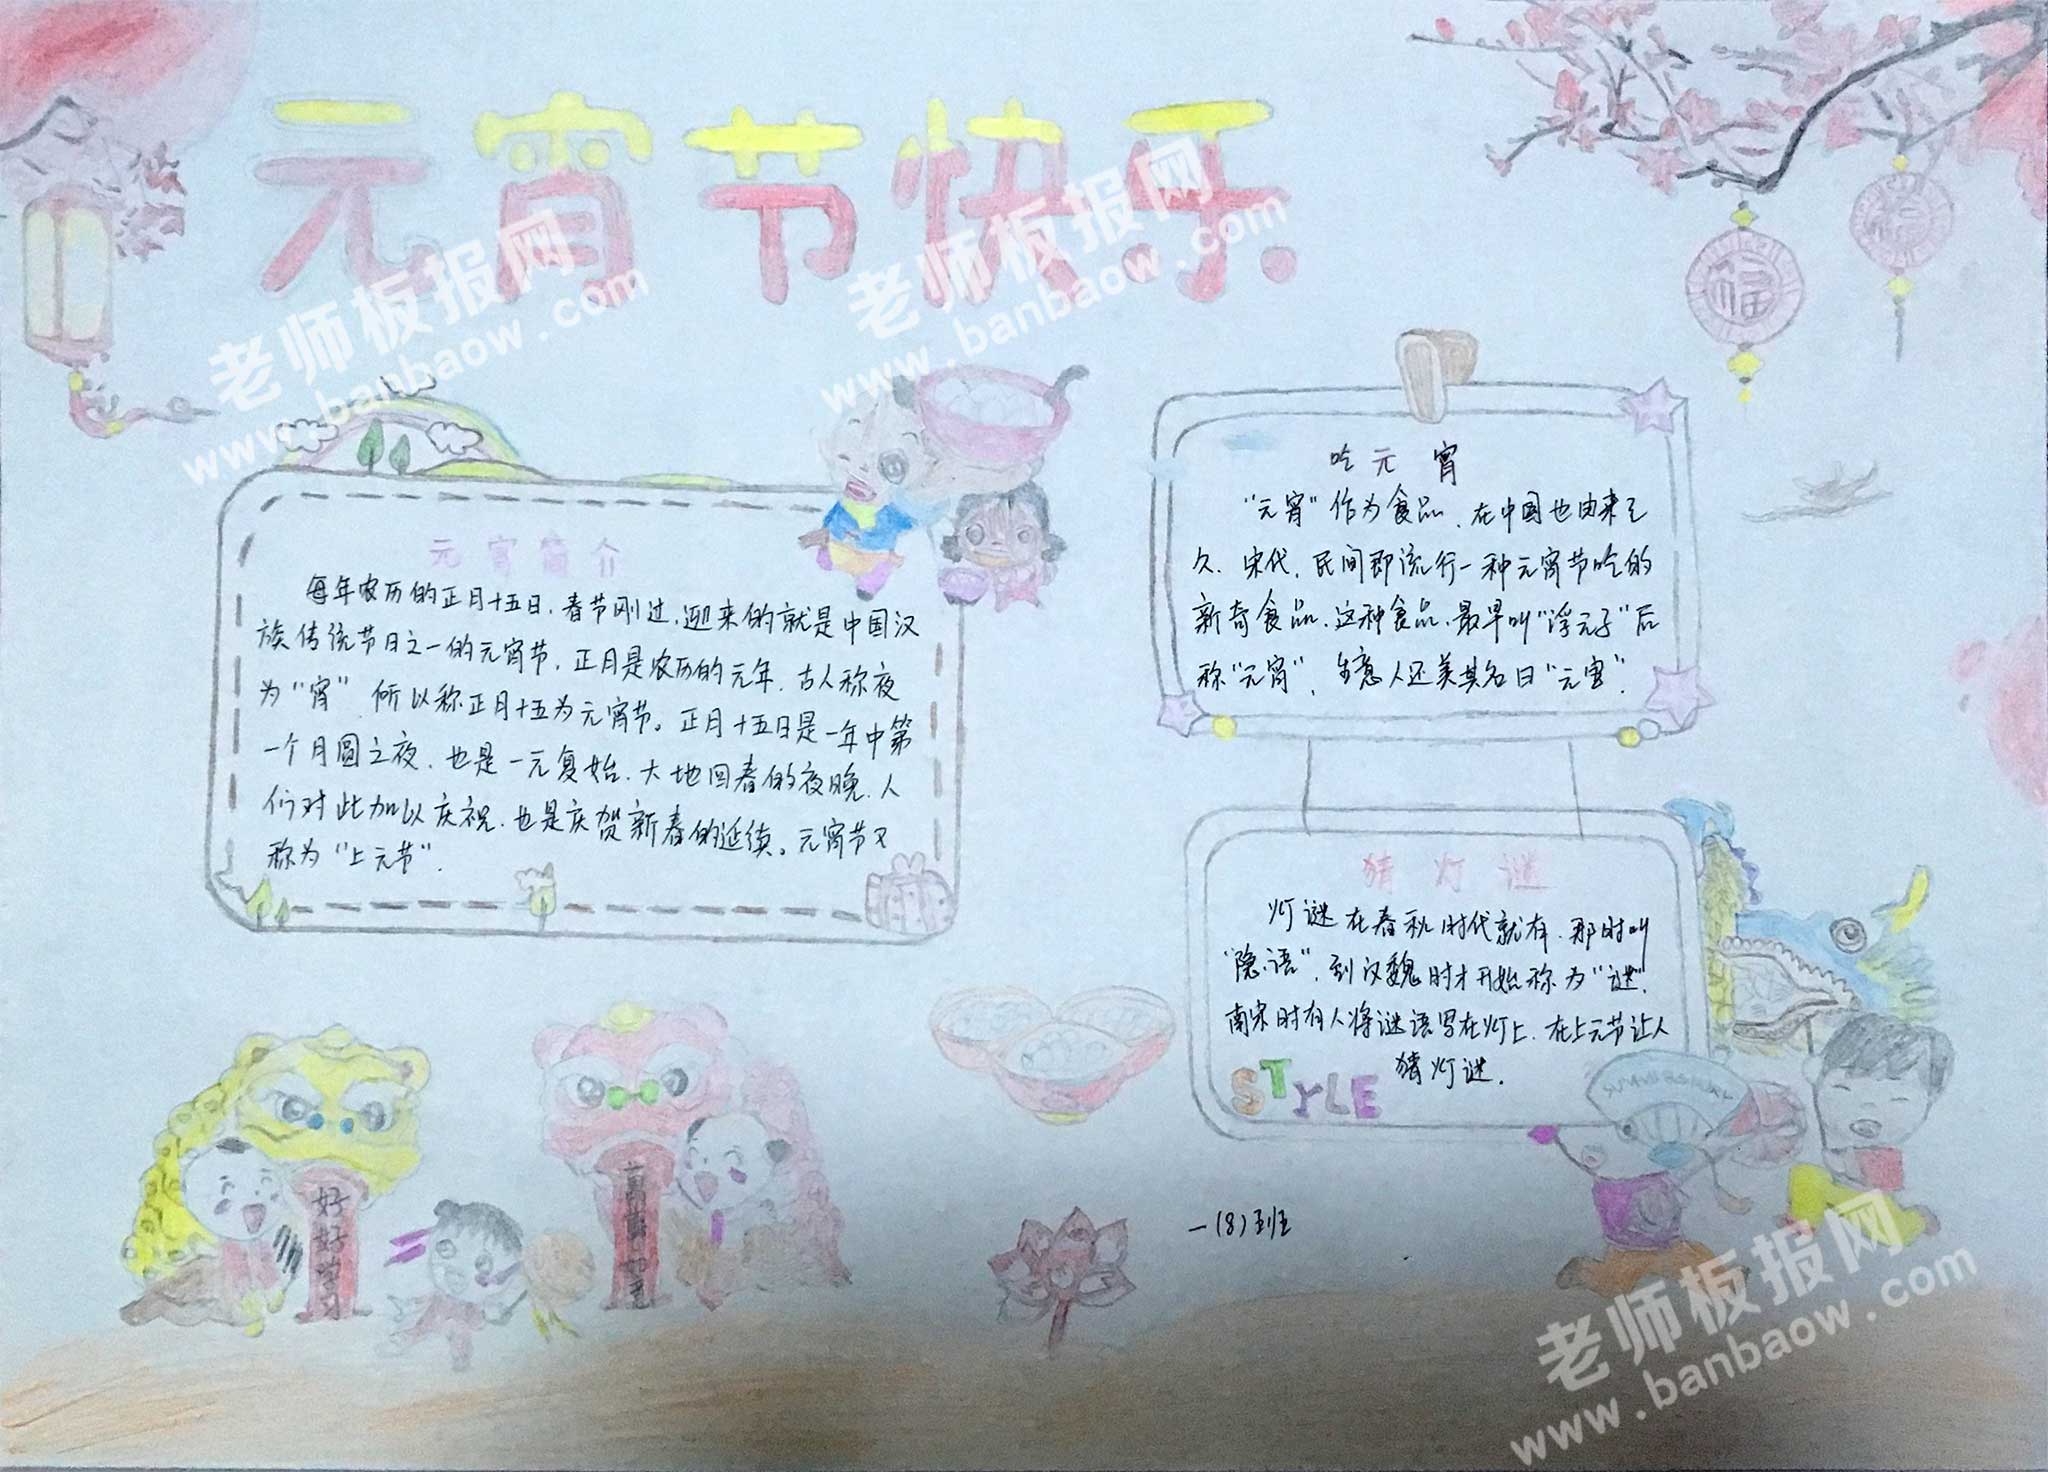 元宵节快乐
福
福
元宵简介
每年农历的正月十五日，春节刚过，迎来的就是中国汉
族传统节日之一的元宵节，正月是农历的元年，古人称夜
为“宵”，所以称正月十五为元宵节。正月十五日是一年中第
一个月圆之夜，也是一元复始，大地回春的夜晚，人
们对此加以庆祝，也是庆贺新春的延续。元宵节又
称为“上元节”.
吃元宵
“元宵”作为食品，在中国也由来已
久，宋代，民间即流行一种元宵节吃的
新奇食品，这种食品，最早叫“浮元子”后
称“元宵”，生意人还美其名曰“元宝”.
猜灯谜
灯谜在春秋时代就有，那时叫
“隐语”，到汉魏时才开始称为“谜”，
南宋时有人将谜语写在灯上，在上元节让人
猜灯谜.
STYLE
好好学习
一(8)班
老师板报网
www.banbaow.com
老师板报网
www.banbaow.com
老师板报网
www.banbaow.com